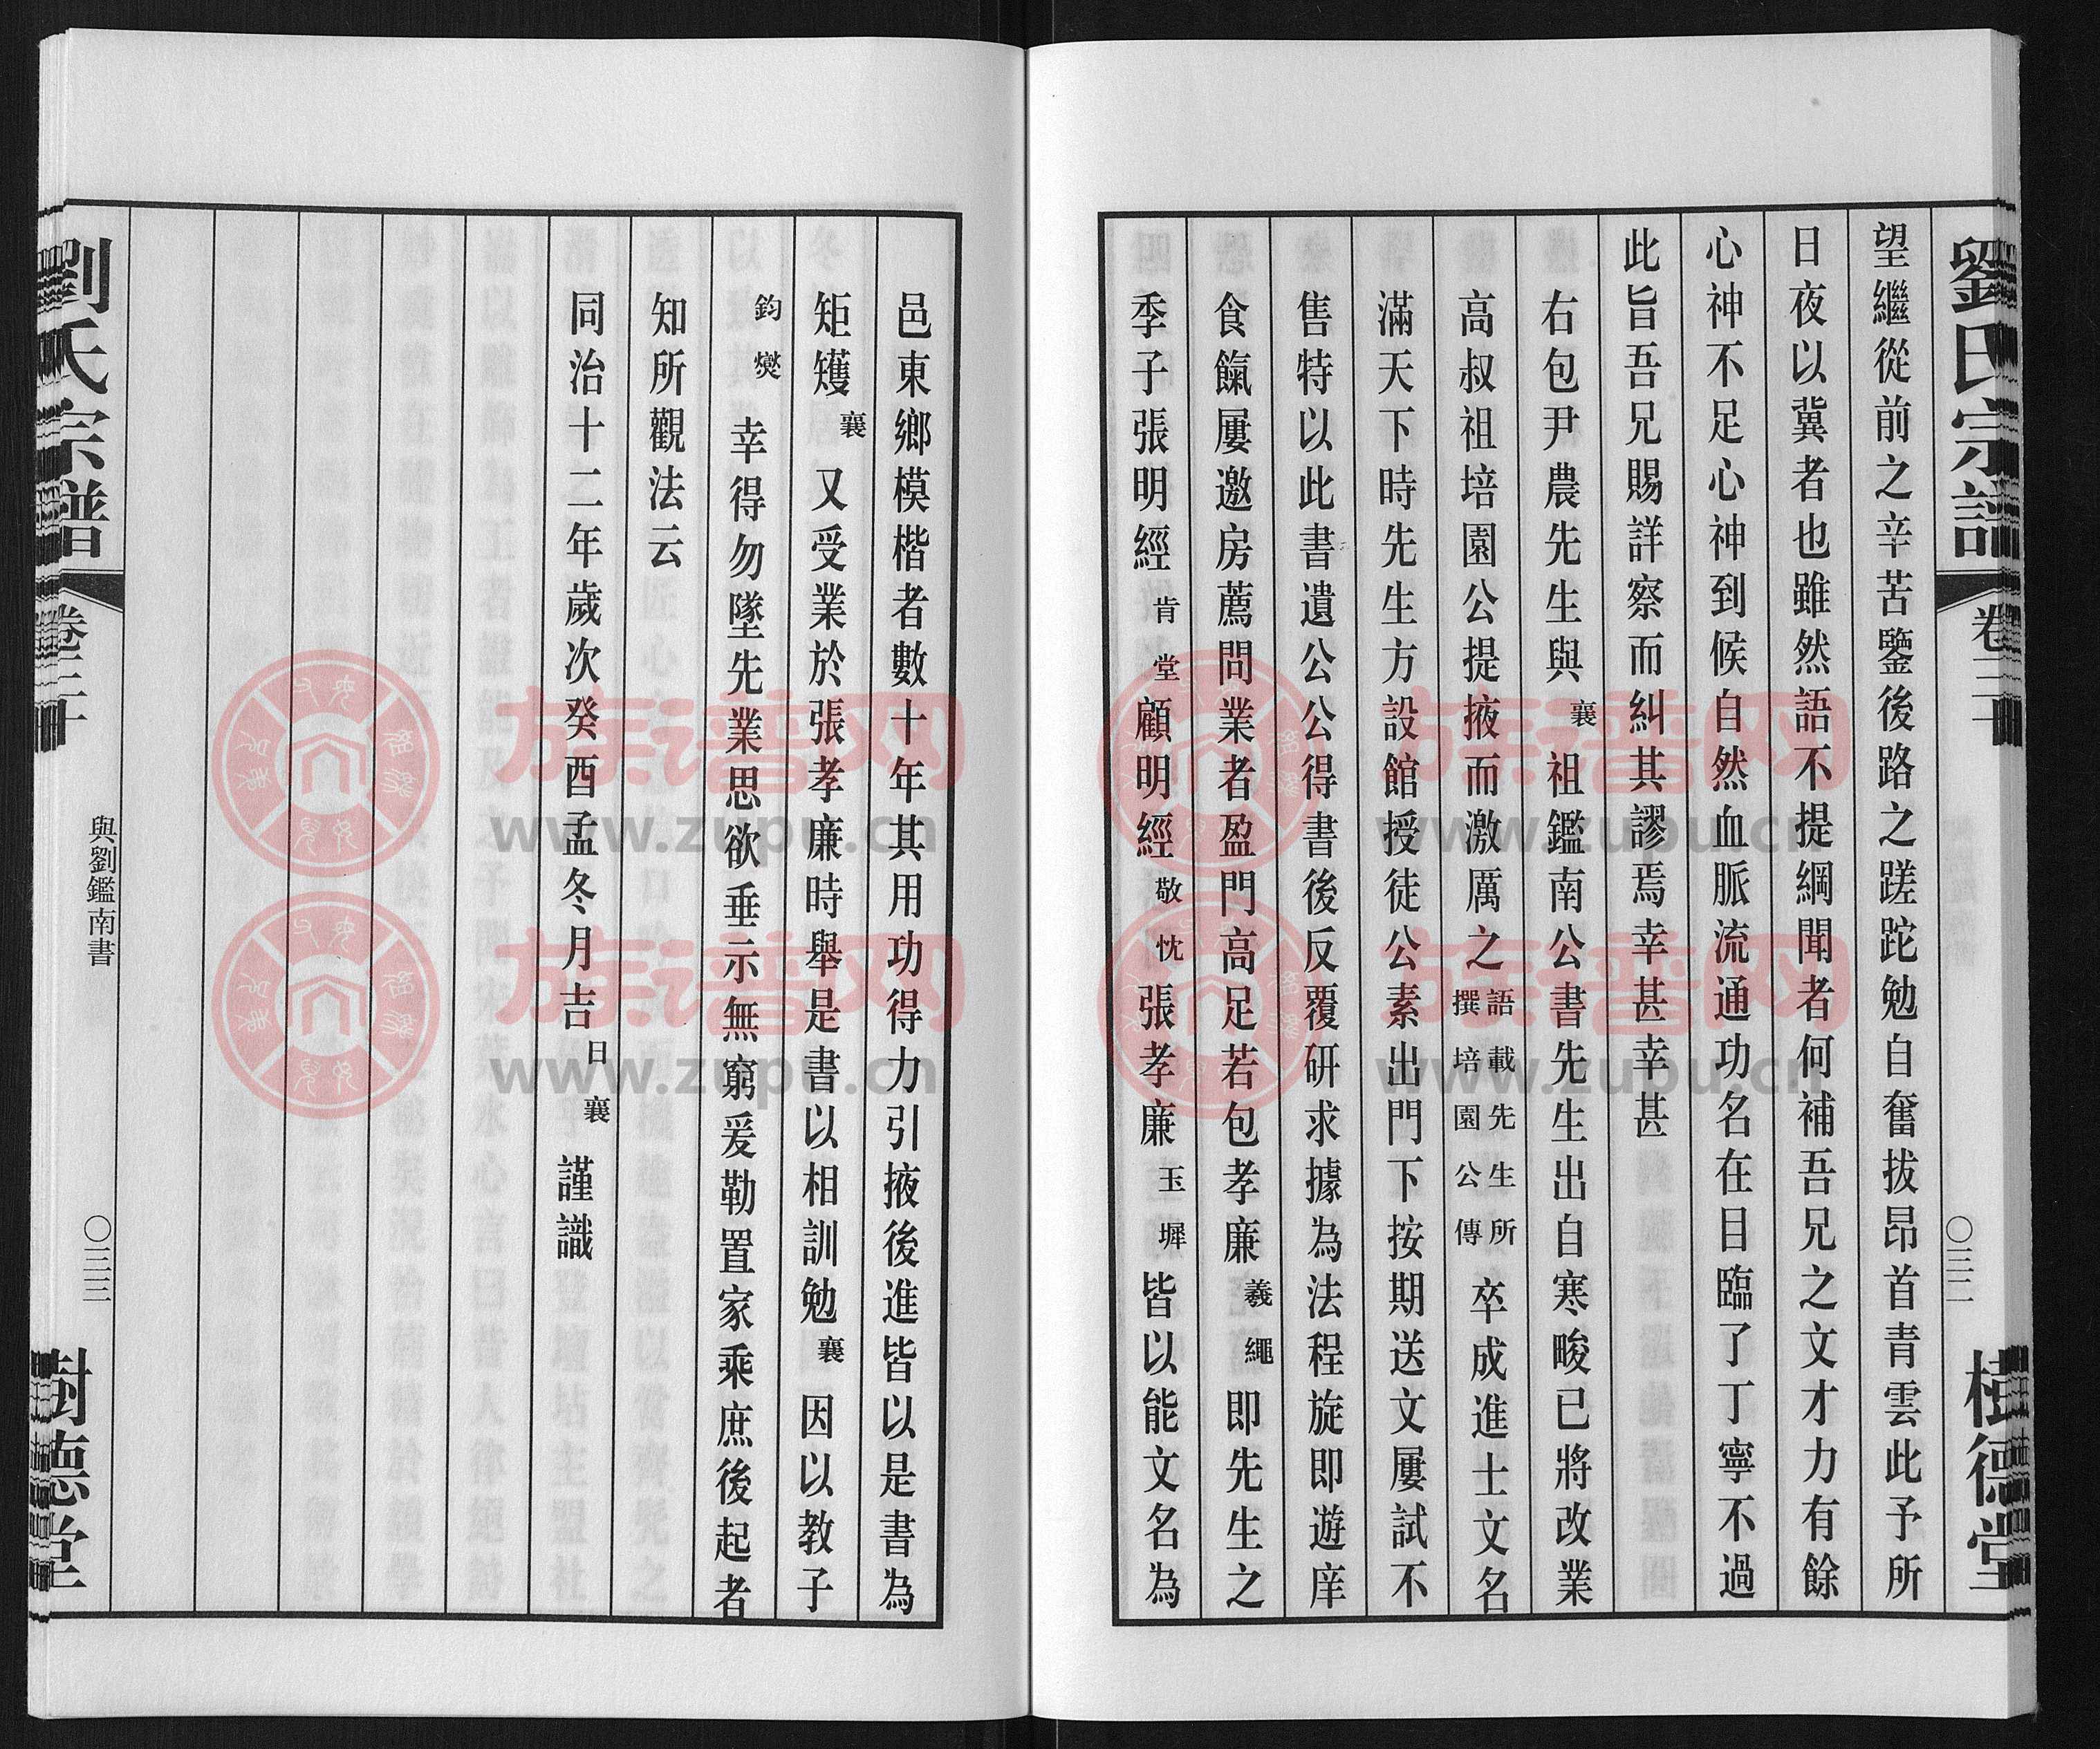 劉氏宗譜
卷二十
〇三二
樹德堂
望繼從前之辛苦鑒後路之蹉跎勉自奮拔昂首青雲此予所
日夜以冀者也雖然語不提綱聞者何補吾兄之文才力有餘
心神不足心神到候自然血脈流通功名在目臨了丁寧不過
此旨吾兄賜詳察而糾其謬焉幸甚幸甚
右包尹農先生與襄祖鑑南公書先生出自寒畯已將改業
高叔祖培園公提掖而激厲之語載先生所撰培園公傳卒成進士文名
滿天下時先生方設館授徒公素出門下按期送文屢試不
售特以此書遺公公得書後反覆研求據為法程旋即遊庠
食餼屢邀房薦問業者盈門高足若包孝廉羲繩即先生之
季子張明經肯堂顧明經敬忱張孝廉玉墀皆以能文名為
邑東鄉模楷者數十年其用功得力引掖後進皆以是書為
矩矱襄又受業於張孝廉時舉是書以相訓勉襄因以教子
鈞爕幸得勿墜先業思欲垂示無窮爰勒置家乘庶後起者
知所觀法云
同治十二年歲次癸酉孟冬月吉日襄謹識
劉氏宗譜
卷二十
與劉鑑南書
〇三三
樹德堂
族谱网
www.zupu.cn
族谱网
www.zupu.cn
族谱网
www.zupu.cn
族谱网
www.zupu.cn